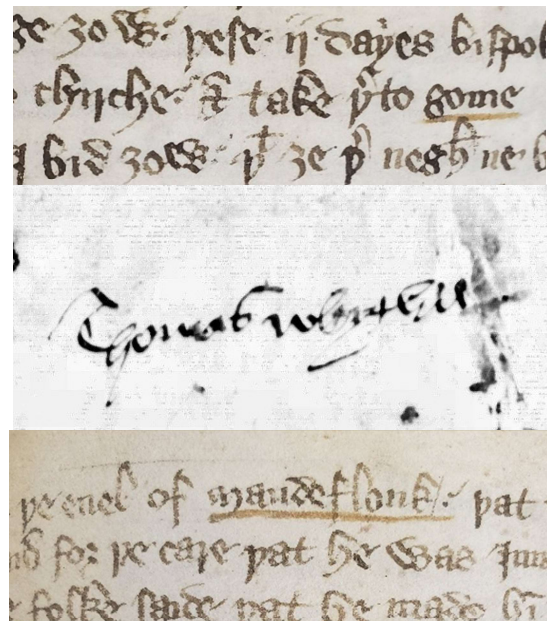 ȝe ȝow: þese ij dayes bifpol
chirche: & take þto gome
bid ȝow: þt ȝe þ negh ne b
Thomas
þe euel of maudeflonk: þat
for þe care þat he was Jnn
folke saide þat he made hi